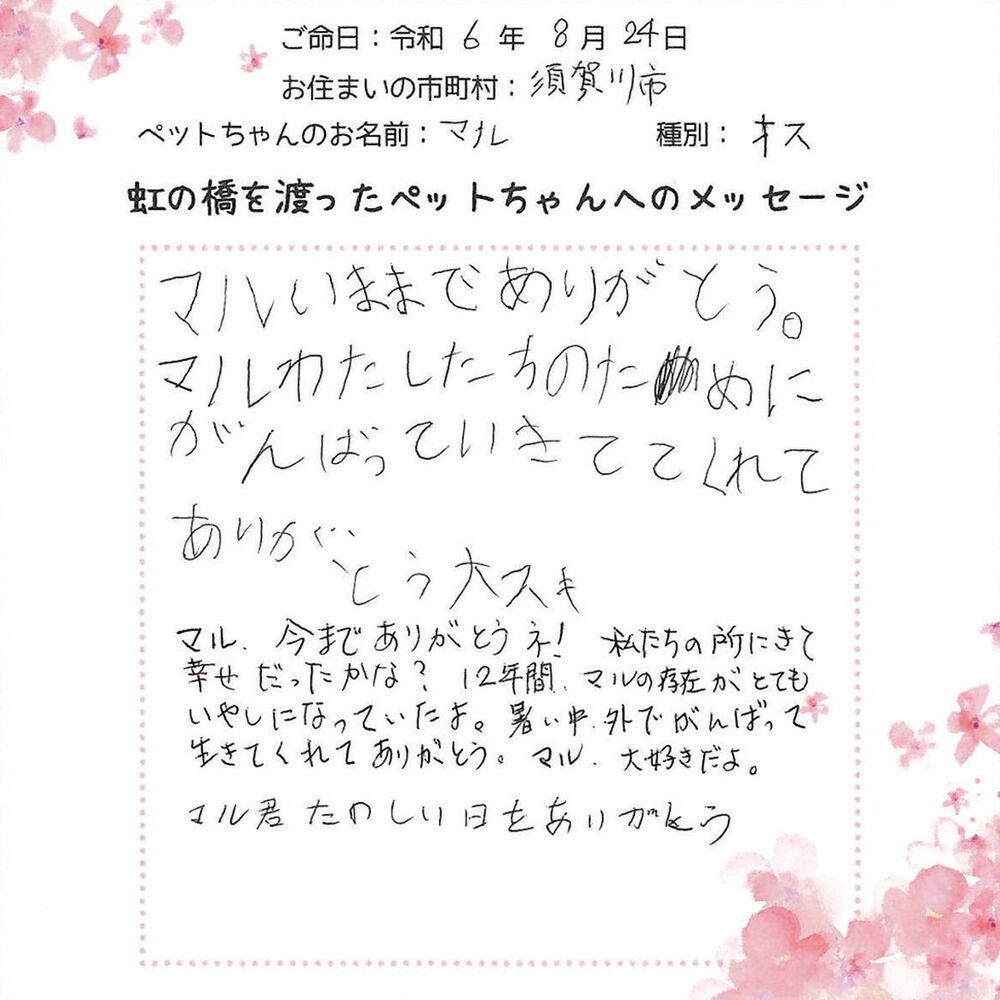 ご命日：令和 6 年 8 月 24日
お住まいの市町村：須賀川市
ペットちゃんのお名前：マル 種別：オス
虹の橋を渡ったペットちゃんへのメッセージ
マルいままでありがとう。
マルわたしたちのために
がんばっていきててくれて
ありが
とう大スキ
マル、今までありがとうネ! 私たちの所にきて
幸せだったかな? 12年間、マルの存在がとても
いやしになっていたよ。暑い中、外でがんばって
生きてくれてありがとう。マル、大好きだよ。
マル君たのしい日をありがとう